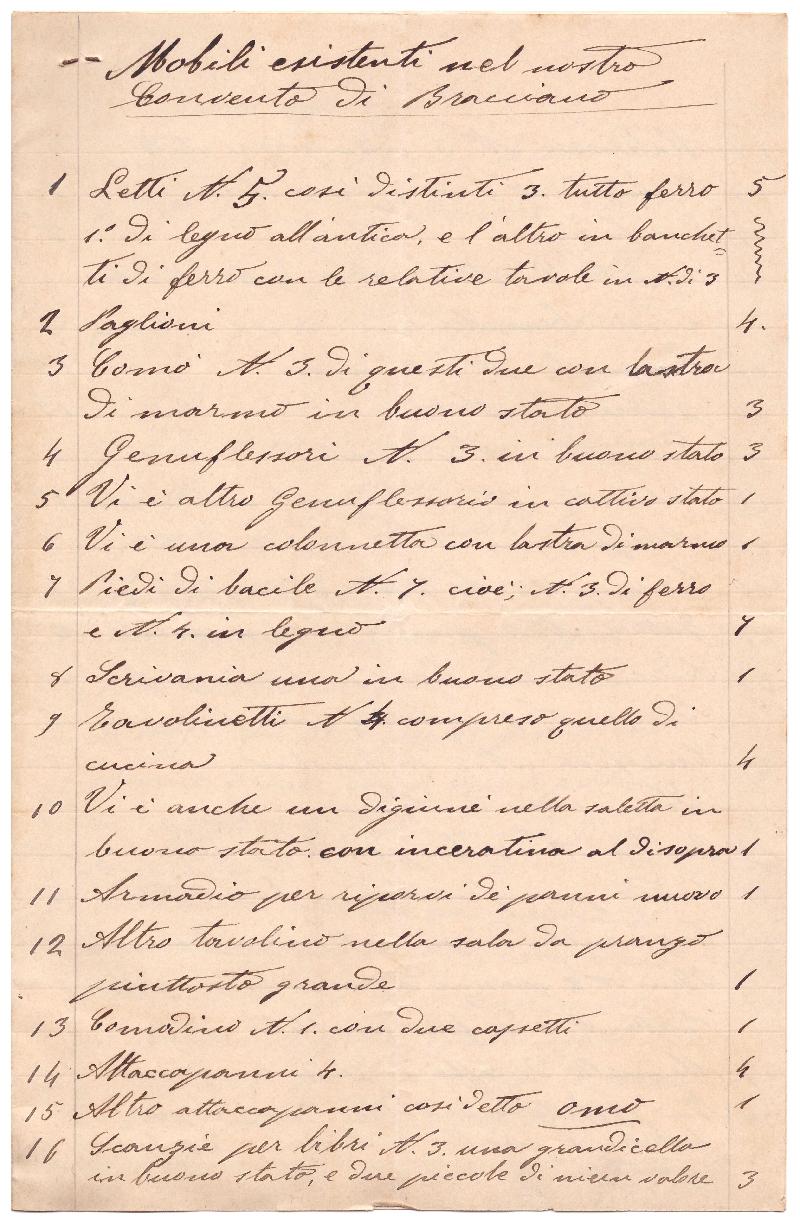 Mobili esistenti nel nostro
Convento di Bracciano
1 Letti N. 5. così distinti 3. tutto ferro 5
1.° di legno all'antica, e l'altro in banchet=
ti di ferro con le relative tavole in N. di 3
2 Paglioni 4.
3 Comò N. 3. di questi due con lastra
di marmo in buono stato 3
4 Genuflessori N. 3. in buono stato 3
5 Vi è altro Genuflessorio in cattivo stato 1
6 Vi è una colonnetta con lastra di marmo 1
7 Piedi di bacile N. 7. cioè; N. 3. di ferro
e N. 4. in legno 7
8 Scrivania una in buono stato 1
9 Tavolinetti N 4. compreso quello di
cucina 4
10 Vi è anche un digiunè nella saletta in
buono stato. con inceratina al disopra 1
11 Armadio per riporvi dei panni nuovo 1
12 Altro tavolino nella sala da pranzo
piuttosto grande 1
13 Comodino N. 1. con due cassetti 1
14 Attaccapanni 4. 4
15 Altro attaccapanni così detto omo 1
16 Scanzie per libri N. 3. una grandicella
in buono stato, e due piccole di niun valore 3